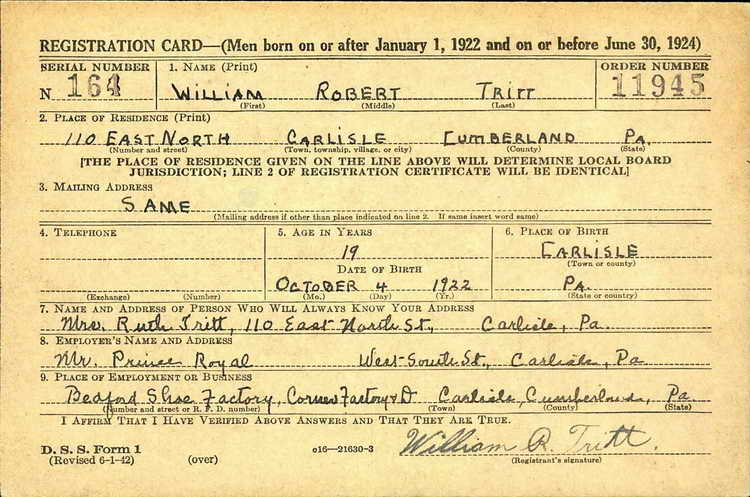 REGISTRATION CARD—(Men born on or after January 1, 1922 and on or before June 30, 1924)
SERIAL NUMBER 1. NAME (Print) ORDER NUMBER
N 164 WILLIAM ROBERT TRITT 11945
(First) (Middle) (Last)
2. PLACE OF RESIDENCE (Print)
110 EAST NORTH CARLISLE CUMBERLAND PA.
(Number and street) (Town, township, village, or city) (County) (State)
[THE PLACE OF RESIDENCE GIVEN ON THE LINE ABOVE WILL DETERMINE LOCAL BOARD
JURISDICTION; LINE 2 OF REGISTRATION CERTIFICATE WILL BE IDENTICAL]
3. MAILING ADDRESS
SAME
(Mailing address if other than place indicated on line 2. If same insert word same)
4. TELEPHONE 5. AGE IN YEARS 6. PLACE OF BIRTH
19 CARLISLE
(Town or county)
DATE OF BIRTH
OCTOBER 4 1922 PA.
(Exchange) (Number) (Mo.) (Day) (Yr.) (State or country)
7. NAME AND ADDRESS OF PERSON WHO WILL ALWAYS KNOW YOUR ADDRESS
Mrs. Ruth Tritt, 110 East North St., Carlisle, Pa.
8. EMPLOYER'S NAME AND ADDRESS
Mr. Prince Royal West South St., Carlisle, Pa
9. PLACE OF EMPLOYMENT OR BUSINESS
Bedford Shoe Factory, Corner Factory & D Carlisle, Cumberland, Pa.
(Number and street or R. F. D. number) (Town) (County) (State)
I AFFIRM THAT I HAVE VERIFIED ABOVE ANSWERS AND THAT THEY ARE TRUE.
D. S. S. Form 1
(Revised 6-1-42) (over) o16—21630-3 William R. Tritt.
(Registrant's signature)